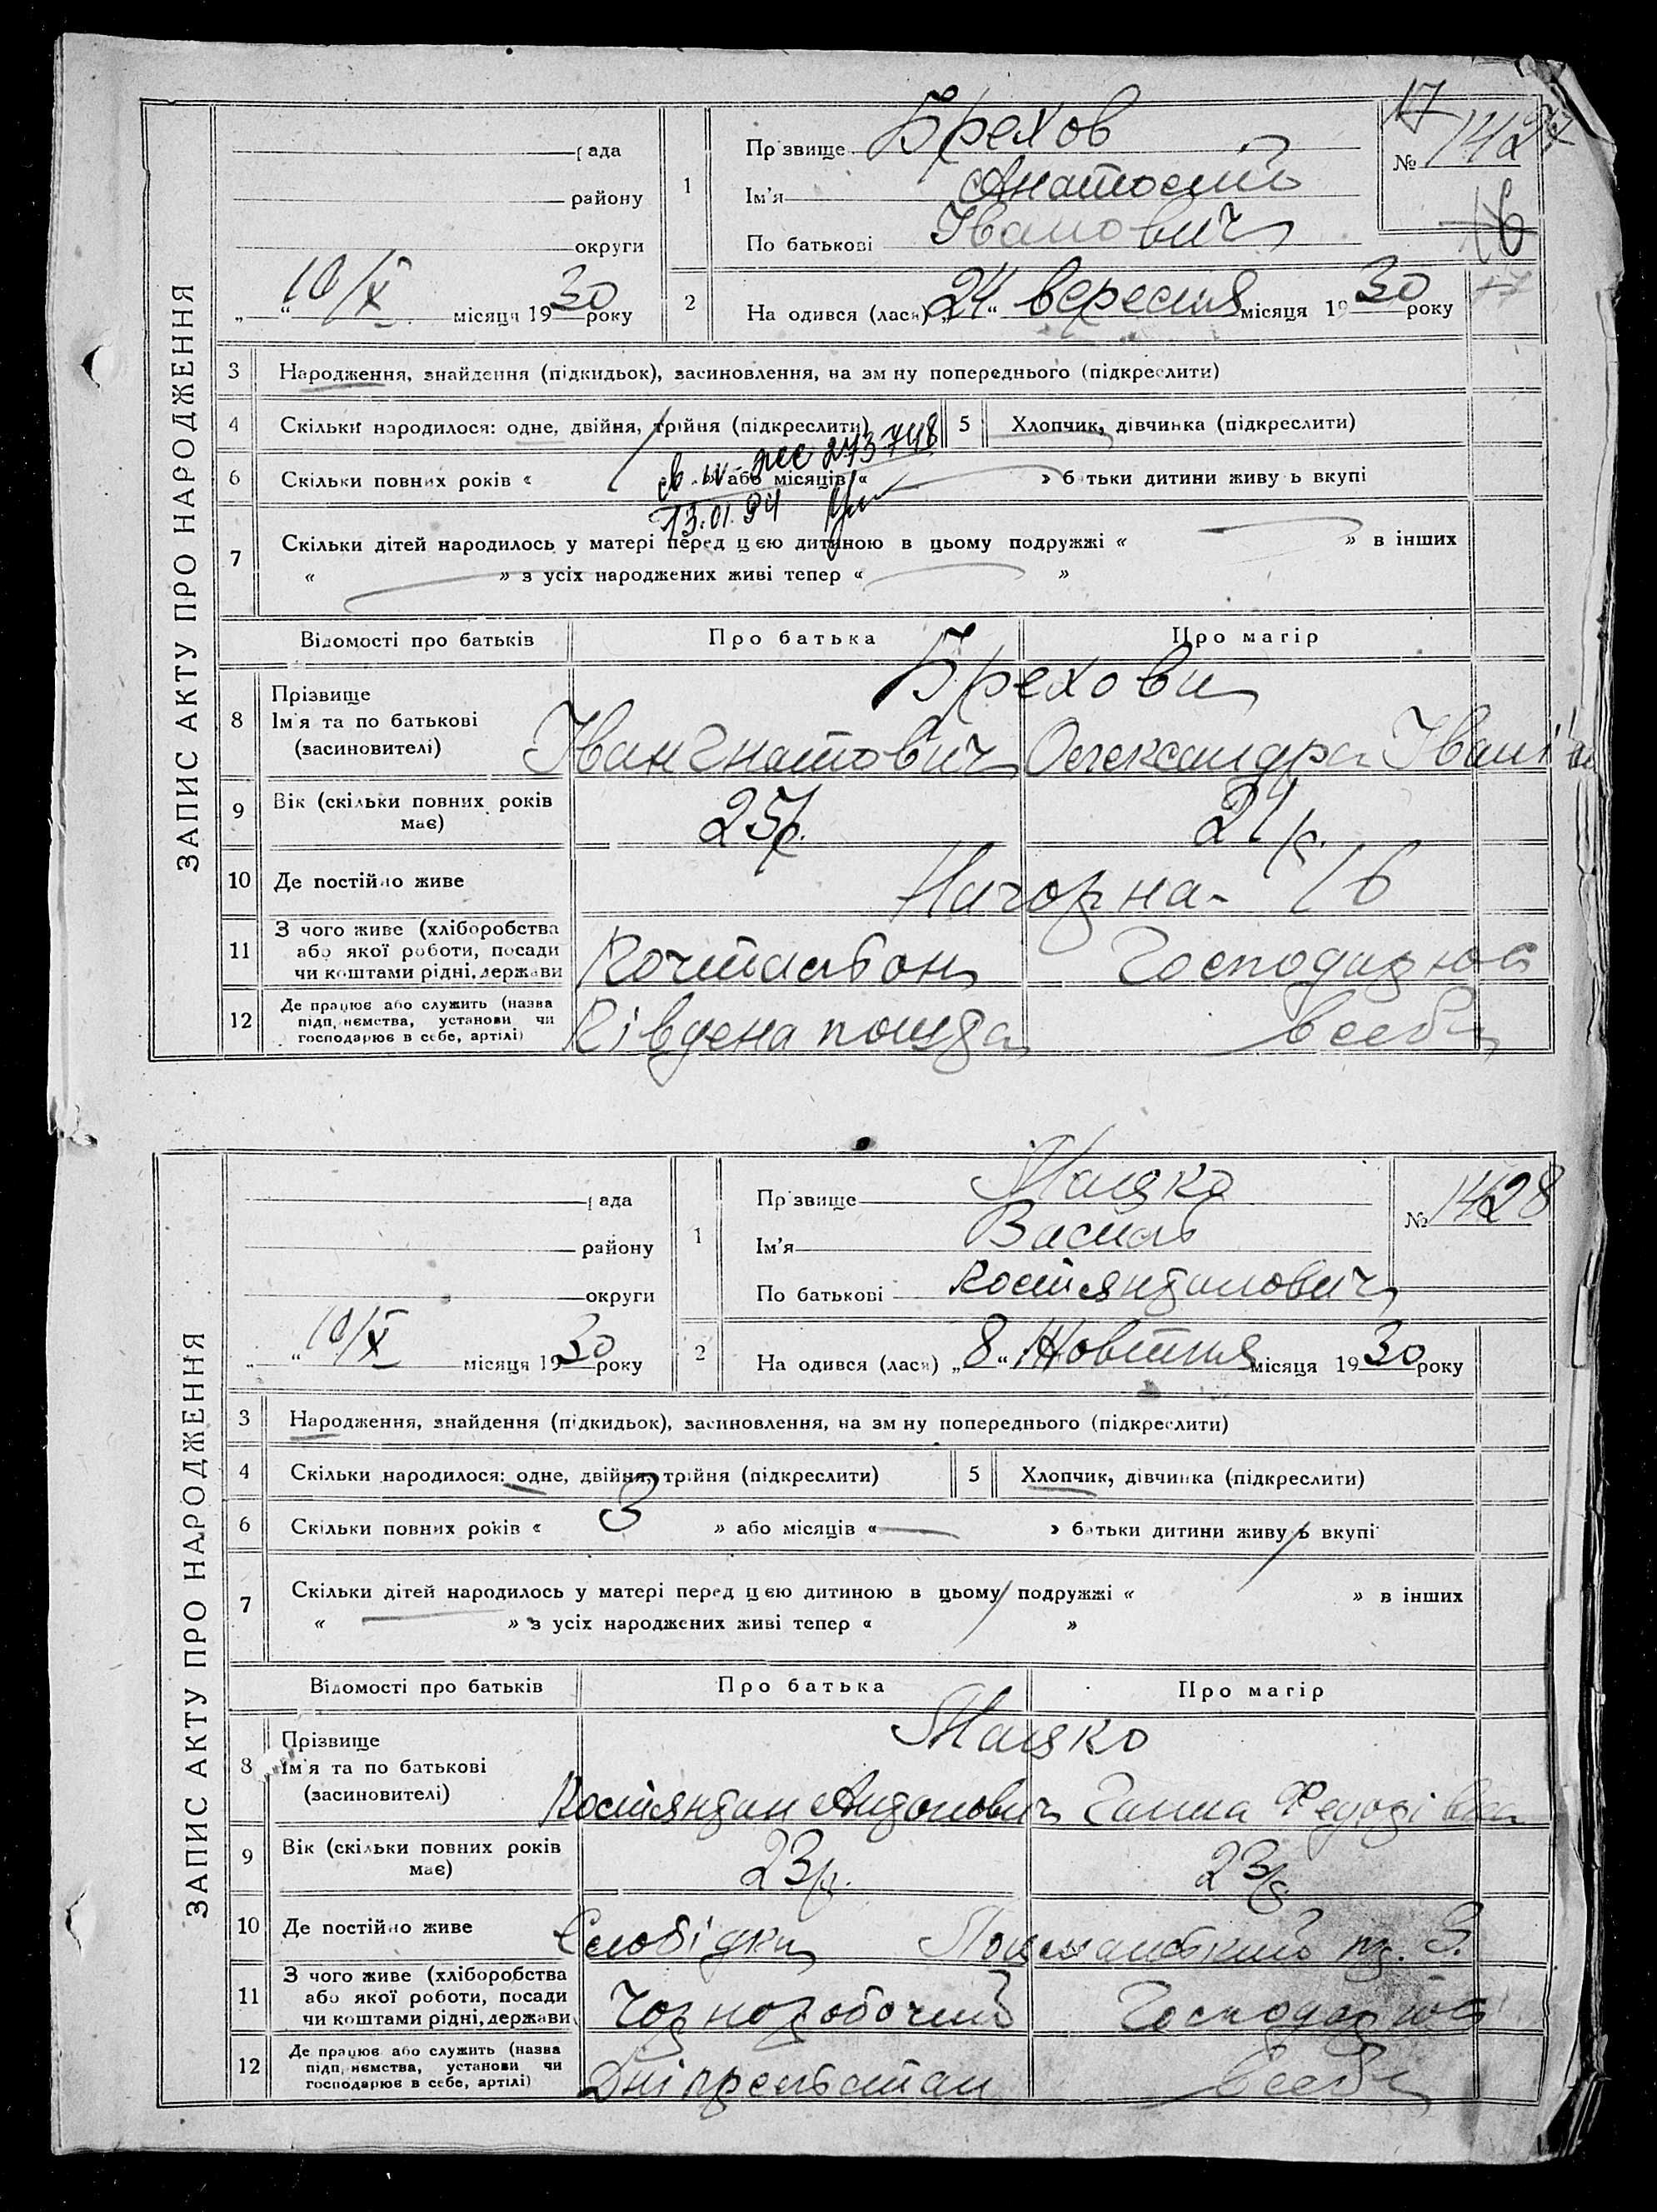 ЗАПИС АКТУ ПРО НАРОДЖЕННЯ
рада
району
округи
10/X місяця 1930 року
1
Прізвище Брехов
Ім'я Анатолій
По батькові Іванович
№ 1427
17
2 На одився (лася) „24“ вересня місяця 1930 року
3 Народження, знайдення (підкидьок), засиновлення, на зм ну попереднього (підкреслити)
4 Скільки народилося: одне, двійня, трійня (підкреслити)
5 Хлопчик, дівчинка (підкреслити)
273748
6 Скільки повних років « » або місяців « » батьки дитини живу ь вкупі
13.01.94
7 Скільки дітей народилось у матері перед цею дитиною в цьому подружжі « » в інших
« » з усіх народжених живі тепер « »
Відомості про батьків Про батька Про матір
8 Прізвище Брехови
Ім'я та по батькові
(засиновителі) Іван Гнатович Олександра Іванівна
9 Вік (скільки повних років має) 25р. 21р.
10 Де постійно живе Нагорна - 16
11 З чого живе (хліборобства або якої роботи, посади чи коштами рідні, держави Почтальон Господарює
12 Де працює або служить (назва підприємства, установи чи господарює в себе, артілі) Південа пошта в себе
ЗАПИС АКТУ ПРО НАРОДЖЕННЯ
рада
району
округи
10/X місяця 1930 року
1
Прізвище Мацко
Ім'я Василь
По батькові Костянтинович
№ 1428
2 На одився (лася) „8“ Жовтня місяця 1930 року
3 Народження, знайдення (підкидьок), засиновлення, на зм ну попереднього (підкреслити)
4 Скільки народилося: одне, двійня, трійня (підкреслити)
5 Хлопчик, дівчинка (підкреслити)
6 Скільки повних років « 3 » або місяців « » батьки дитини живу ь вкупі
7 Скільки дітей народилось у матері перед цею дитиною в цьому подружжі « » в інших
« » з усіх народжених живі тепер « »
Відомості про батьків Про батька Про матір
8 Прізвище Мацко
Ім'я та по батькові
(засиновителі) Костянтин Антонович Ганна Федорівна
9 Вік (скільки повних років має) 23р. 23р.
10 Де постійно живе Слобідка 3.
11 З чого живе (хліборобства або якої роботи, посади чи коштами рідні, держави Чорноробочий Господарює
12 Де працює або служить (назва підприємства, установи чи господарює в себе, артілі) Дніпрельстан в себе